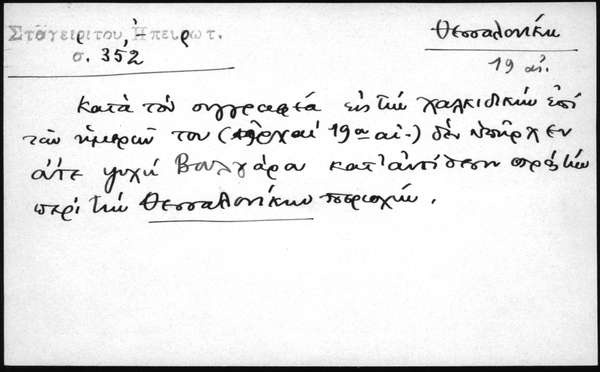 Σταγειρίτου, Ηπειρωτ.
σ. 352
Θεσσαλονίκη
19 αἰ.
Κατὰ τὸν συγγραφέα εἰς τὴν Χαλκιδικὴν ἐπὶ
τῶν ἡμερῶν του (ἀρχαὶ 19ου αἰ.) δὲν ὑπῆρχεν
οὔτε ψυχὴ Βουλγάρα κατ' ἀντίθεσιν πρὸς τὴν
περὶ τὴν Θεσσαλονίκην περιοχήν.